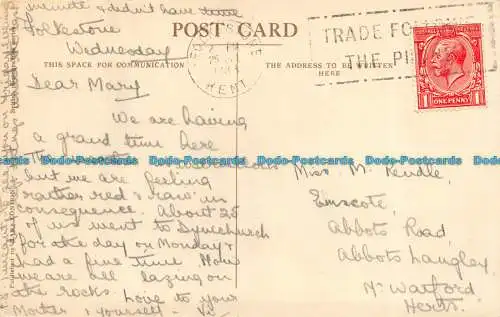 minute & didn't have time
Folkestone
Wednesday
POST CARD
THIS SPACE FOR COMMUNICATION
THE ADDRESS TO BE WRITTEN
HERE
KENT
TRADE FOLLOWS
THE
ONE PENNY
Dear Mary
We are having
a grand time here
The
but we are feeling
rather red & raw in
consequence. About 25
of us went to Dymchurch
for the day on Monday &
had a fine time. Now
we are all lazing on
the rocks. Love to your
Mother & yourself
Miss M. Kendle,
Emscote,
Abbots Road,
Abbots Langley,
Nr. Watford
Herts.
bidolubaski